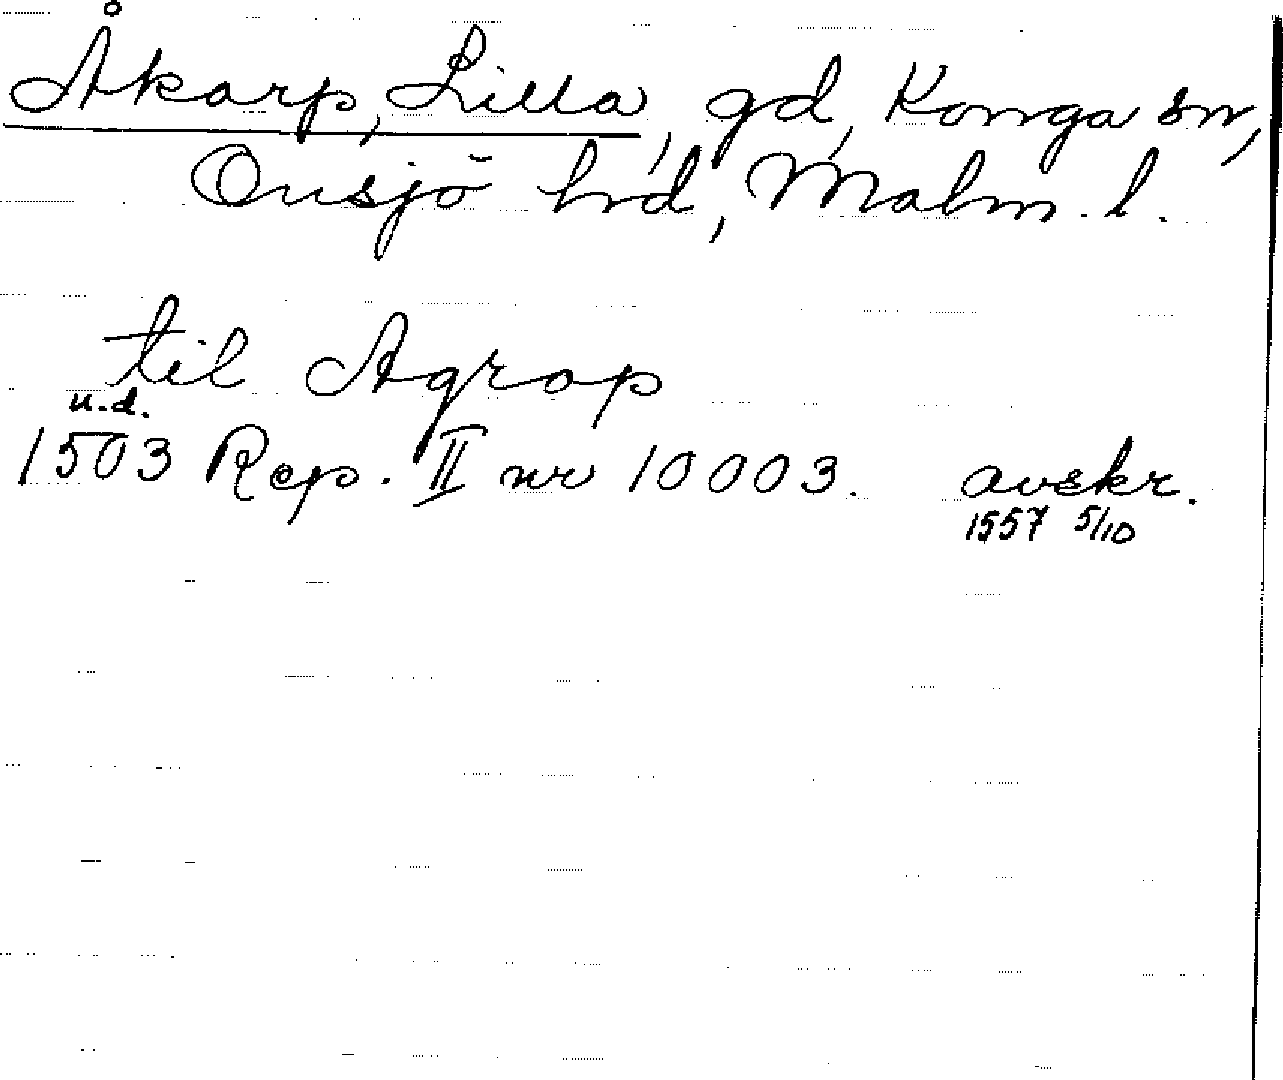 Åkarp, Lilla, gd, Konga sn,
Onsjö hd, Malm. l.
til Agrap
u.d.
1503 Rep. II nr 10003. avskr.
1557 5/10